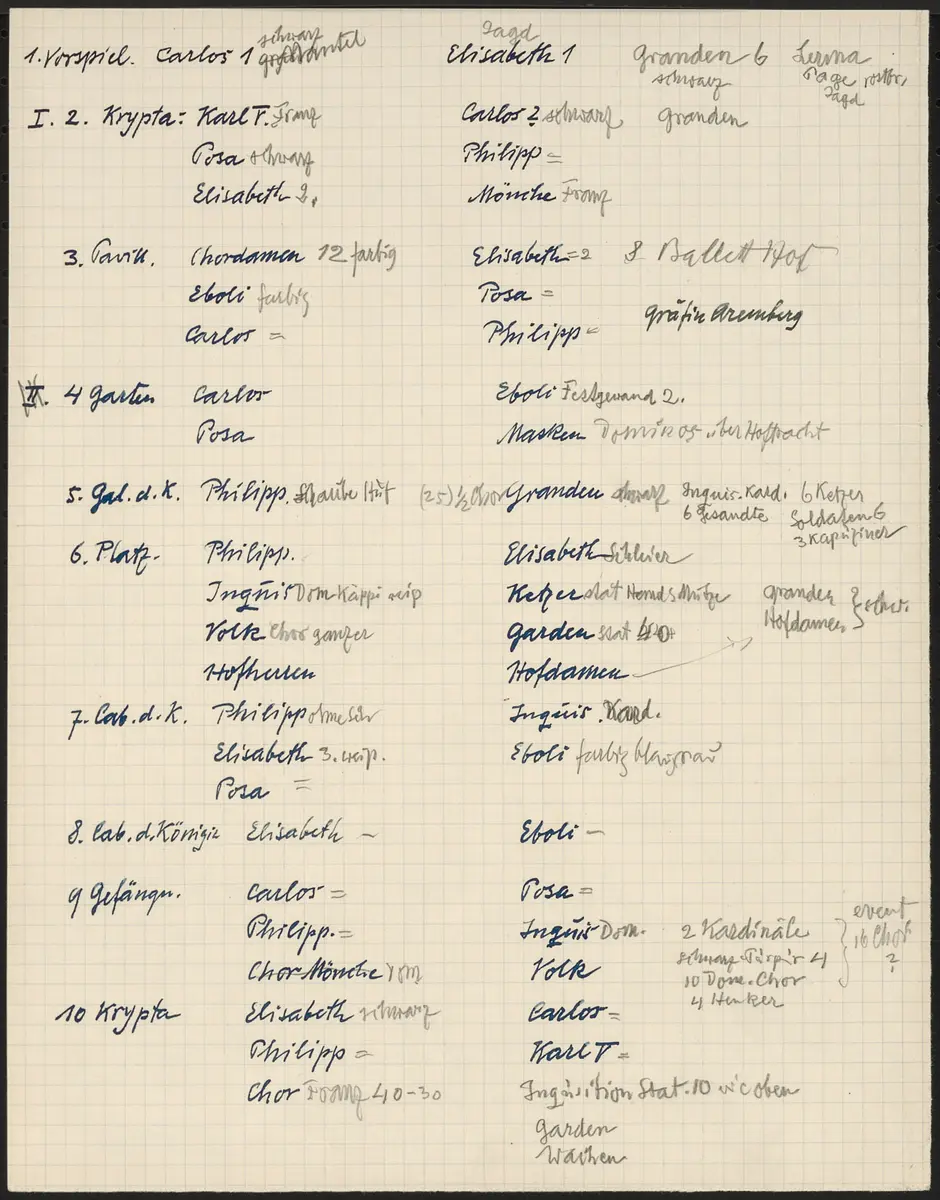 schwarz Jagd
1. Vorspiel. Carlos 1 Elisabeth 1 Granden 6 Lerma
schwarz Page rostbr.
Jagd
I. 2. Krypta: Karl V. Franz Carlos 2 schwarz Granden
Posa schwarz Philipp =
Elisabeth 2. Mönche Franz
3. Pavill. Chordamen 12 farbig Elisabeth = 2 8 Ballett Hof
Eboli farbig Posa =
Carlos = Philipp = Gräfin Aremberg
II. 4 Garten Carlos Eboli Festgewand 2.
Posa Masken Dominos über Hoftracht
5. Gal. d. K. Philipp. Schaube Hut (25) ½ Chor Granden schwarz Inquis. Kard. 6 Ketzer
6 Gesandte Soldaten 6
3 Kapuziner
6. Platz. Philipp. Elisabeth Schleier
Inquis Dom Käppi weiß Ketzer stat Hemd Mütze Granden } schw.
Volk Chor ganzer Garden stat Hofdamen
Hofherren Hofdamen
7. Cab. d. K. Philipp ohne Inquis. Kard.
Elisabeth 3. weiß. Eboli farbig blaugrau
Posa =
8. Cab. d. Königin Elisabeth – Eboli –
9 Gefängn. Carlos = Posa = event
Philipp. = Inquis Dom. 2 Kardinäle } 16 Chor
Chor Mönche Volk schwarz 4 ?
10 Dom. Chor
4 Henker
10 Krypta Elisabeth schwarz Carlos =
Philipp = Karl V =
Chor Franz 40-30 Inquisition Stat. 10 wie oben
Garden
Wachen